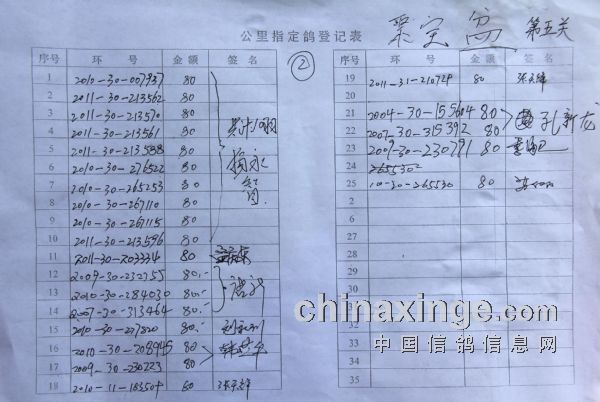 公里指定鸽登记表
第五关
②
序号 环号 金额 签名
1 2010-30-007937 80
2 2011-30-213562 80
3 2011-30-213570 80
4 2011-30-213561 80
5 2011-30-213588 80
6 2010-30-276522 80
7 2010-30-265253 80
8 2010-30-267110 80
9 2010-30-267115 80
10 2011-30-213596 80
11 2011-30-203334 80
12 2009-30-232755 80.-
13 2010-30-284030 80.-
14 2007-30-313464 80.-
15 2010-30-277820 80.-
16 2010-30-208945 80
17 2009-30-230223 80
18 2010-11-183504 80
序号 环号 金额 签名
19 2011-31-210729 80
20
21 2004-30-155604 80
22 2007-30-315392 80 孔新龙
23 2009-30-230791 80
24 265530
25 10-30-265530 80
2
6
27
25
29
30
31
32
33
34
35
chinaxinge.com
中国信鸽信息网